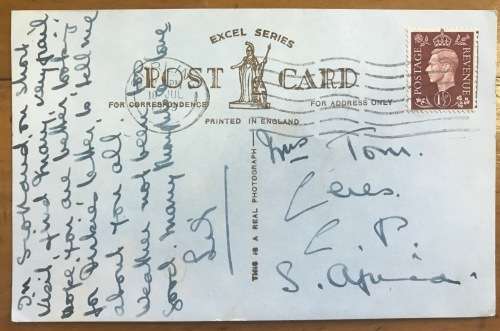 EXCEL SERIES
POST CARD
FOR CORRESPONDENCE
FOR ADDRESS ONLY
PRINTED IN ENGLAND
THIS IS A REAL PHOTOGRAPH
POSTAGE
REVENUE
1½
JUL
In Scotland, on short
visit, find Mary, very frail
hope you are better.
for letter to tell me
about you all.
weather not been too
good. Many love
Mrs Tom.
Ceres
C.P.
S. Africa.